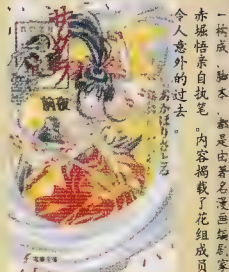 一构成、脚本、都是由著名漫画编剧家
赤堀悟亲自执笔。内容揭载了花组成员
令人意外的过去。
あかほりさとる
前夜